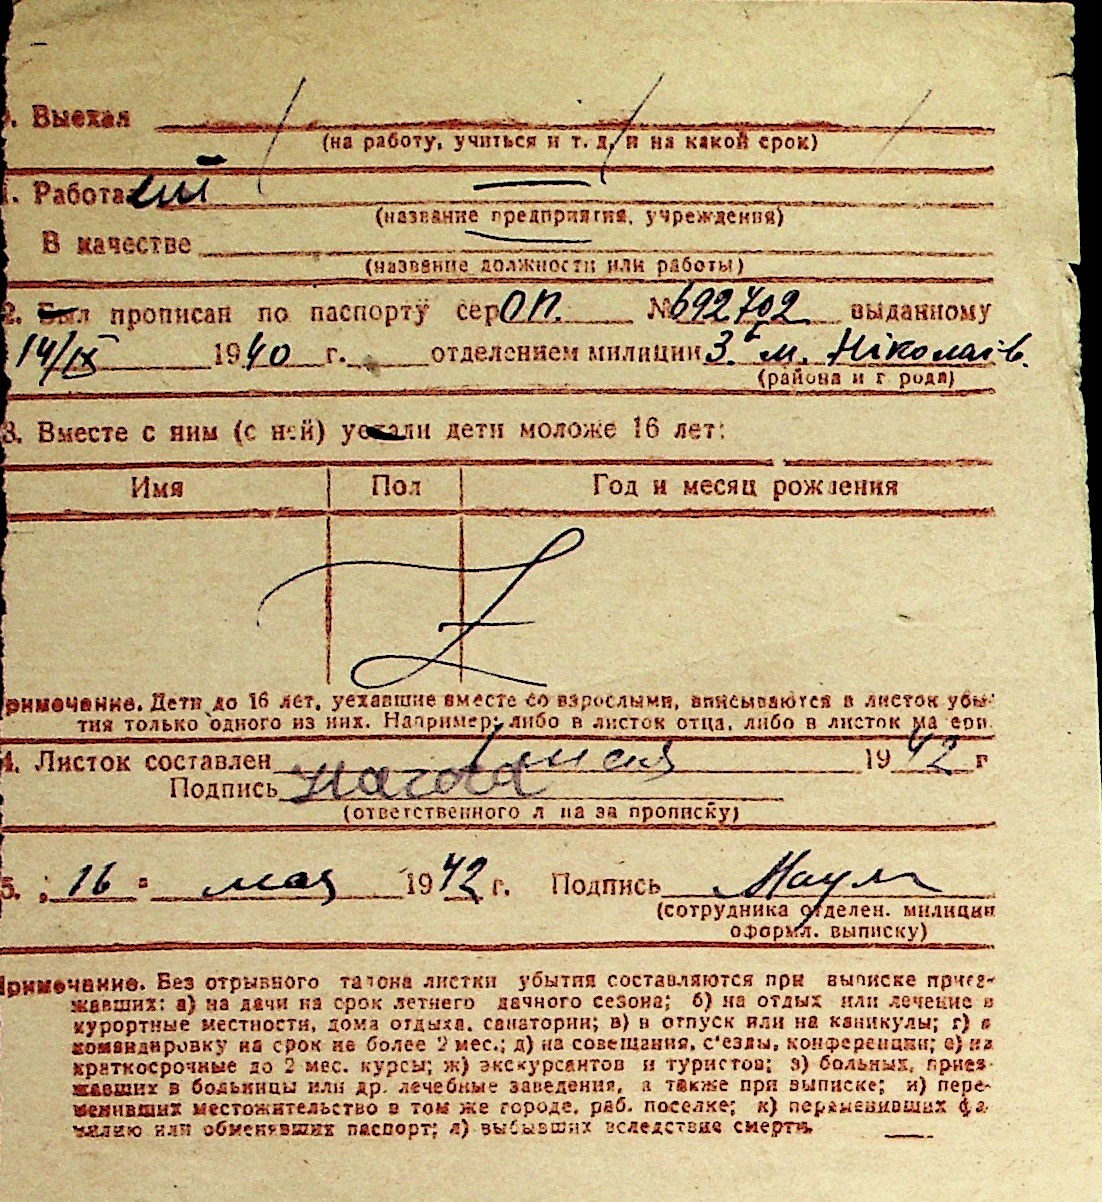 . Выехал
(на работу, учиться и т. д. и на какой срок)
1. Работа
(название предприятия, учреждения)
В качестве
(название должности или работы)
2. Был прописан по паспорту сер ОП. № 692702 выданному
14/IX 1940 г. отделением милиции 3. м. Ніколаїв.
(района и г рода)
3. Вместе с ним (с ней) уехали дети моложе 16 лет:
Имя Пол Год и месяц рождения
Z
римечание. Дети до 16 лет, уехавшие вместе со взрослыми, вписываются в листок убы-
тия только одного из них. Например: либо в листок отца, либо в листок ма ери.
4. Листок составлен 1942 г
Подпись
(ответственного л ца за прописку)
5. 16 " мая 1942 г. Подпись
(сотрудника отделен. милиции
оформл. выписку)
Примечание. Без отрывного талона листки убытия составляются при выписке приез-
жавших: а) на дачи на срок летнего дачного сезона; б) на отдых или лечение в
курортные местности, дома отдыха, санатории; в) в отпуск или на каникулы; г) в
командировку на срок не более 2 мес.; д) на совещания, с'езды, конференции; е) на
краткосрочные до 2 мес. курсы; ж) экскурсантов и туристов; з) больных, приез-
жавших в больницы или др. лечебные заведения, а также при выписке; и) пере-
менивших местожительство в том же городе, раб. поселке; к) переменивших фа-
милию или обменявших паспорт; л) выбывших вследствие смерти.